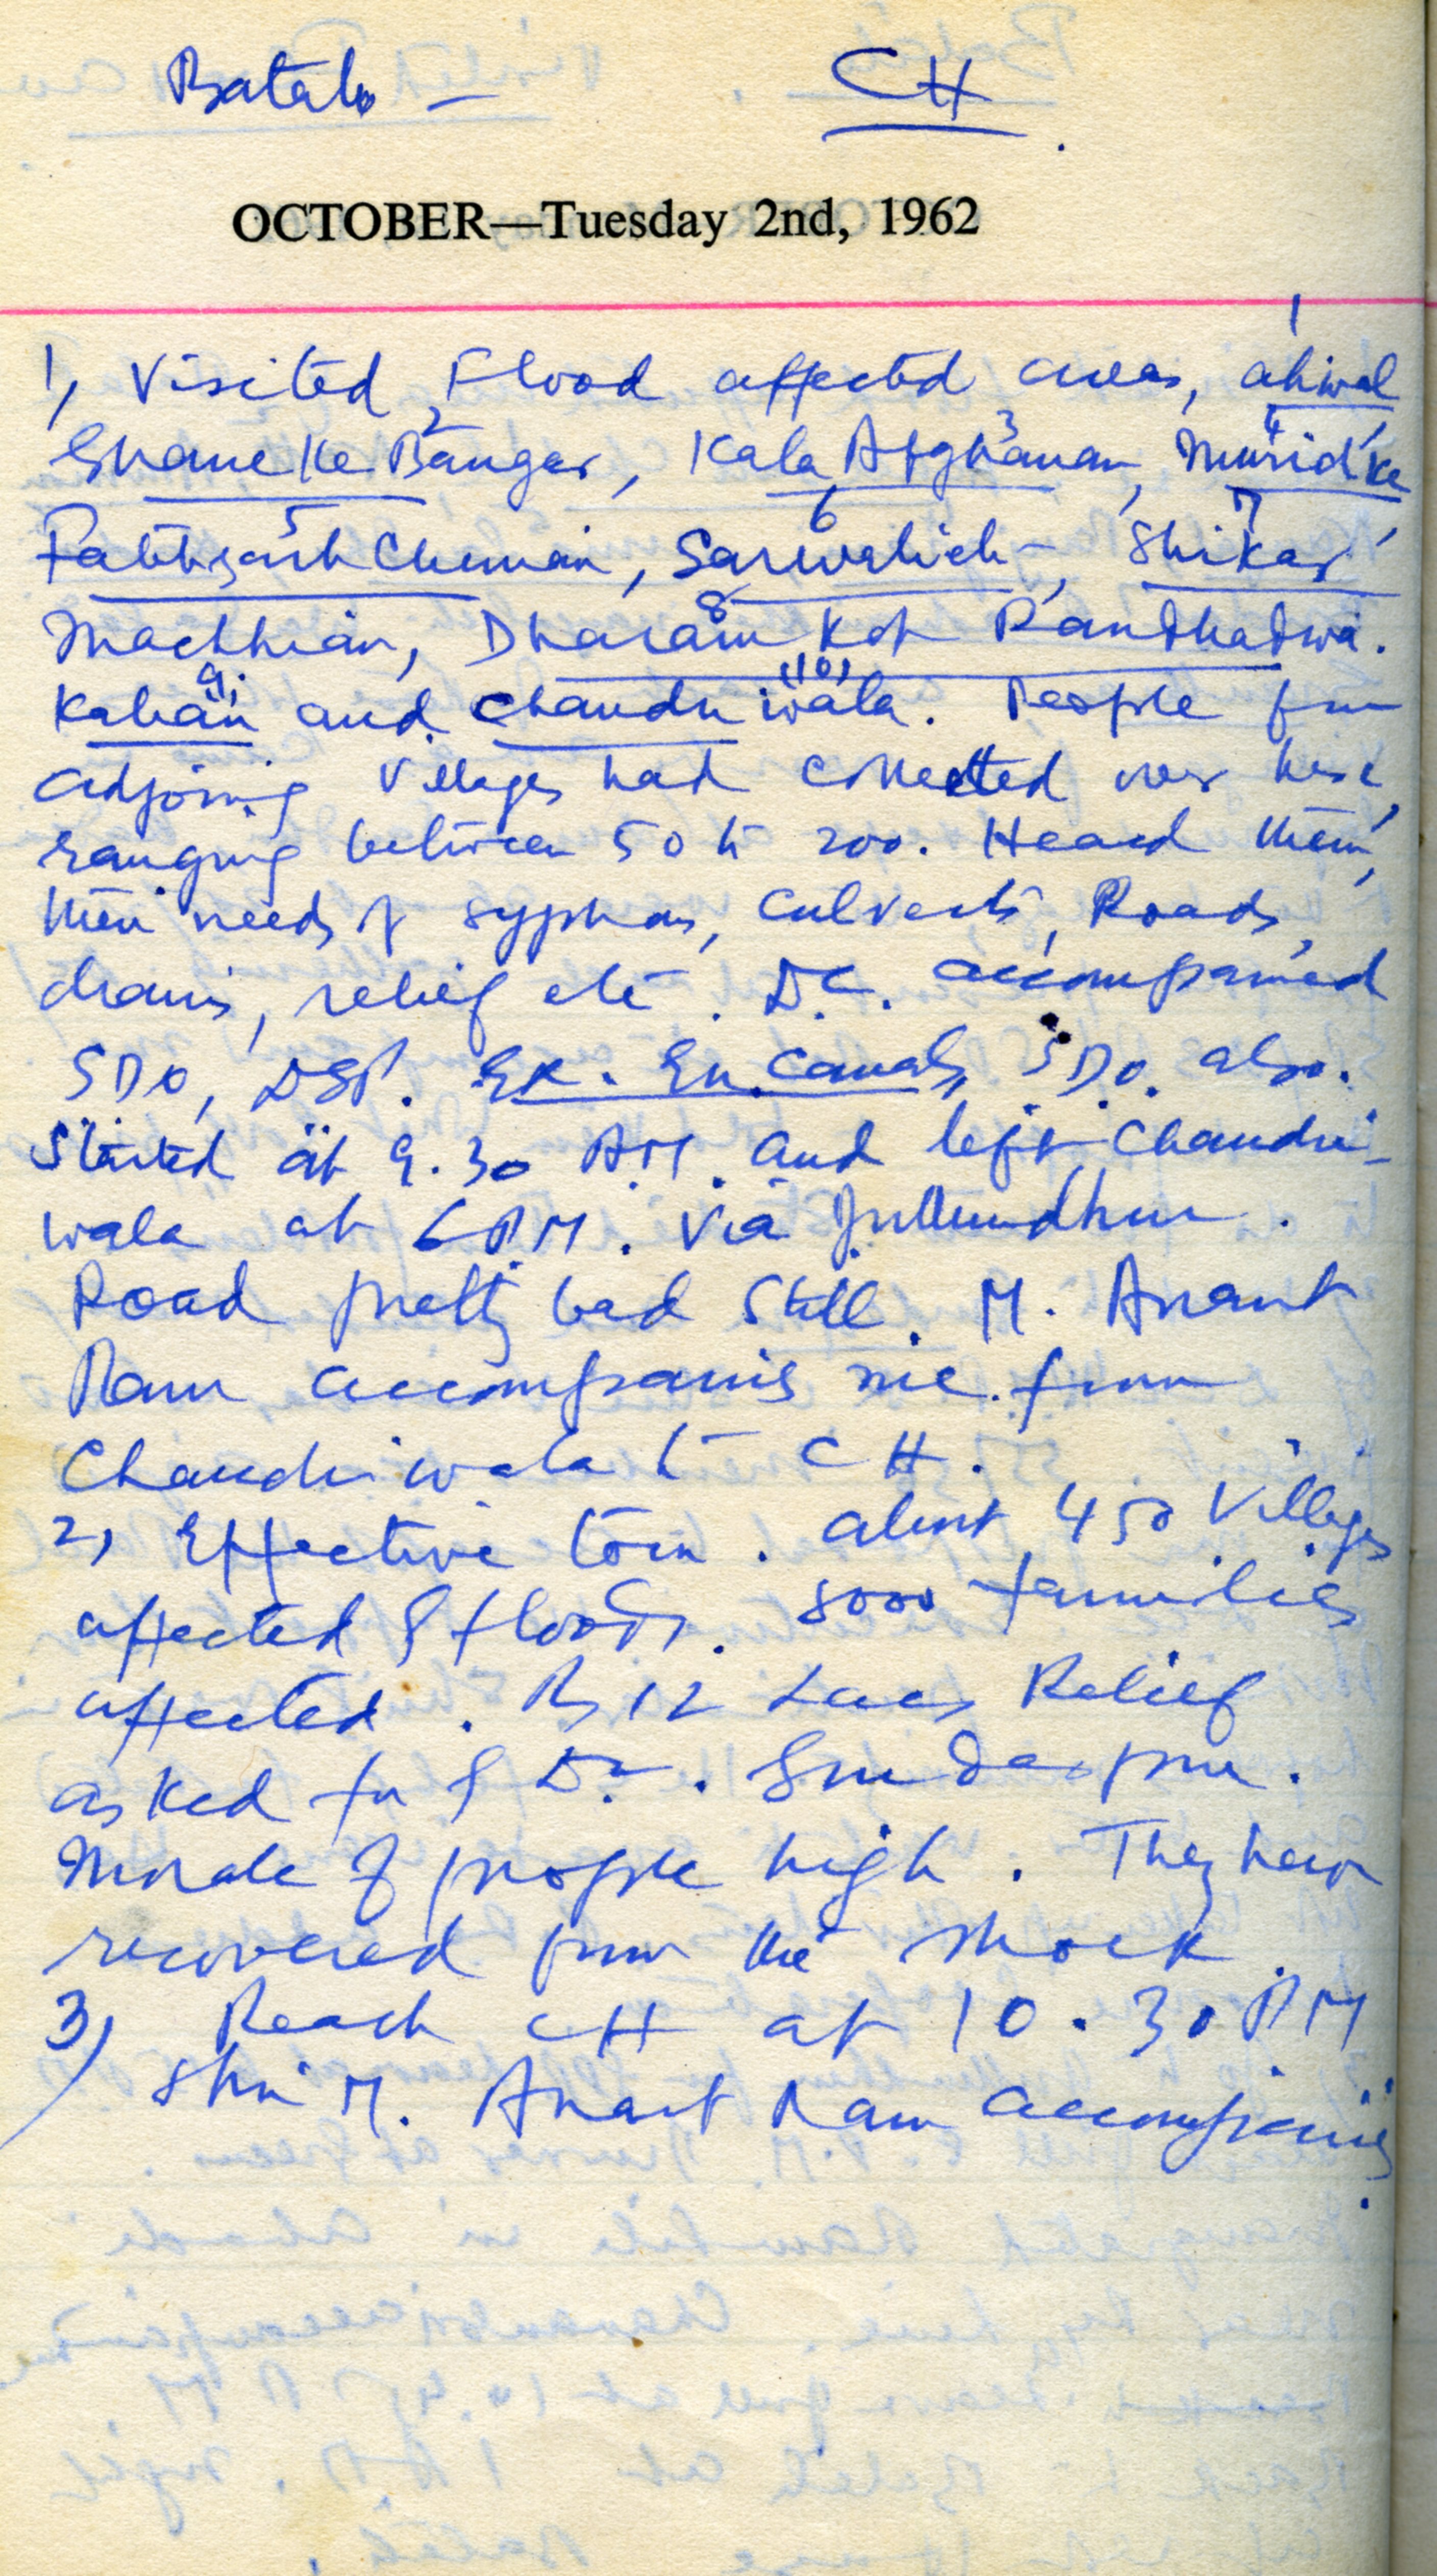 Batala – CH
OCTOBER—Tuesday 2nd, 1962
1
1, Visited Flood affected areas, aliwal,
2 3 4
Ghane Ke Bangar, Kala Afghanan, Murid ke,
5 6 7
Fatehgarh Churian, Sarwalich, Shikar
8
Machhian, Dharam Kot Randhadwa.
9, (10)
Kahan and Chandu wala. People from
adjoing Villages had collected over here,
ranging between 50 to 200. Heard them,
their needs of syphons, Culverts, Roads,
drains, relief etc. D.C. accompanied
SDO, DSP. Ex. En. Canals, S.D.O. also.
Started at 9.30 A.M. and left Chandu-
wala at 6 P.M. Via Jullundhur.
Road pretty bad Still. M. Anant
Ram accompanis me from
Chandu wala to CH.
2, Effective tour. about 450 Villages
affected by floods. 8000 families
affected. Rs 12 Lacs Relief
asked for by D.C. Gurdaspur.
Morale of people high. They have
recovered from the shock.
3) Reach CH at 10.30 PM
Shri M. Anant Ram accompanis.